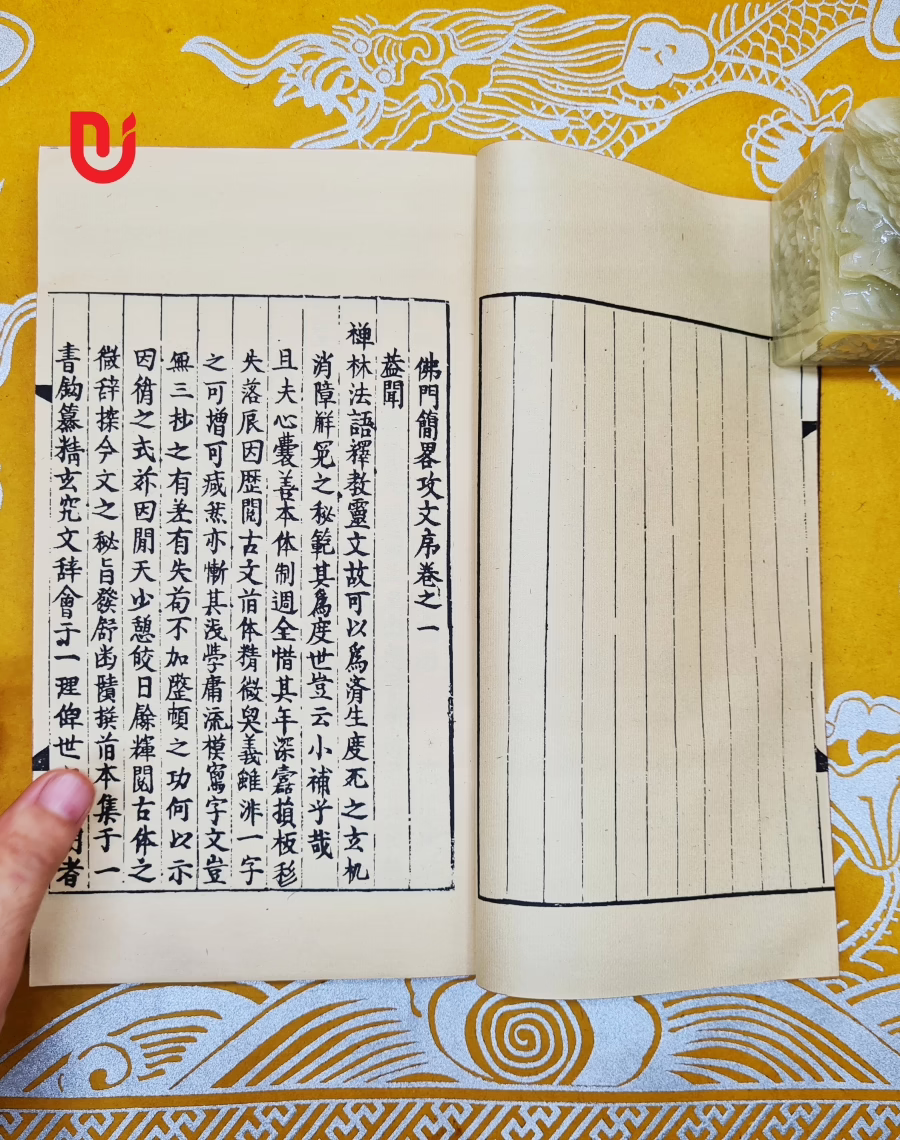 佛門簡畧攻文序卷之一
葢聞
禅林法語釋教靈文故可以爲済生度死之玄机
消障解冤之秘範其爲度世豈云小補乎哉
且夫心囊善本体制週全惜其年深蠧損板
失落辰因歴閲古文前体精微奥義雖一字
之可增可减焄亦慚其浅學庸流模寫字文豈
無三抄之有差有失苟不加整頓之功何以示
因循之式茶因閒天少憩皎日餘輝閲古体之
微辞採今文之秘旨發舒幽賾撰前本集于一
書鈎纂精玄究文辞會于一理俾世者